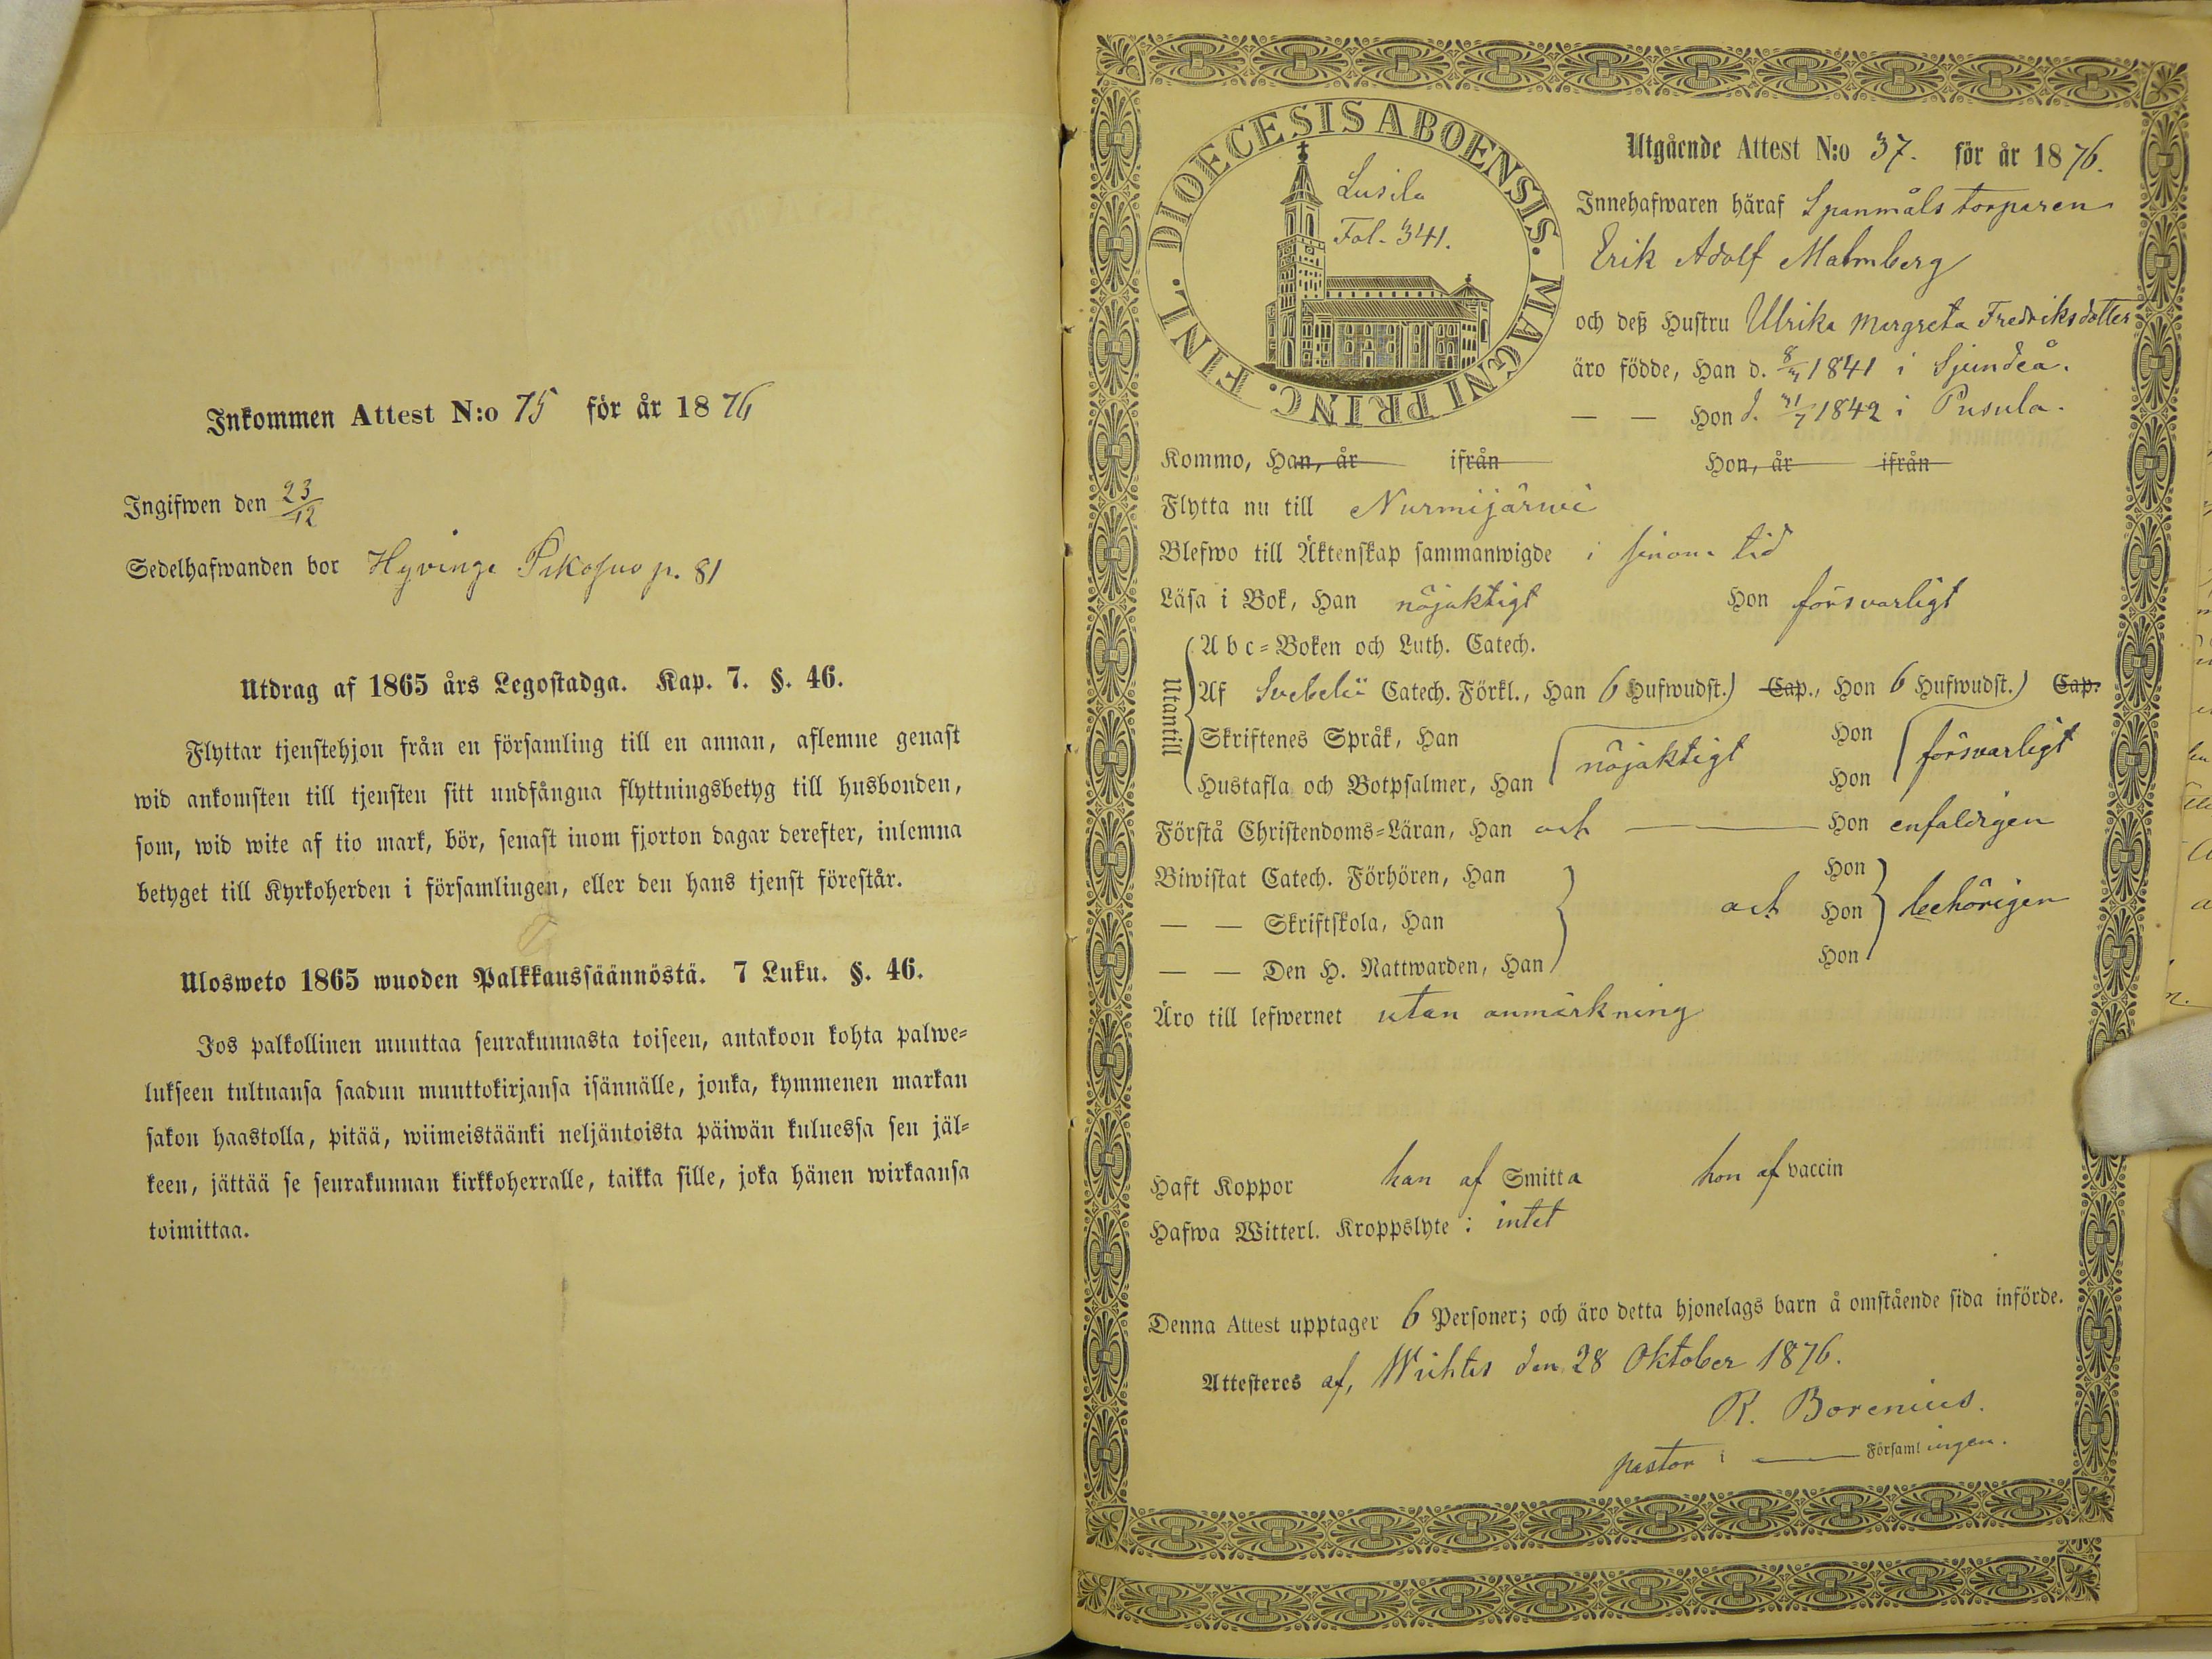 Inkommen Attest N:o 75 för år 1876
Ingifwen den 23/12
Sedelhafwanden bor Hyvinge p. 81
Utdrag af 1865 års Legostadga. Kap. 7. §. 46.
Flyttar tjenstehjon från en församling till en annan, aflemne genast
wid ankomsten till tjensten sitt undfångna flyttningsbetyg till husbonden,
som, wid wite af tio mark, bör, senast inom fjorton dagar derefter, inlemna
betyget till Kyrkoherden i församlingen, eller den hans tjenst förestår.
Ulosweto 1865 wuoden Palkkaussäännöstä. 7 Luku. §. 46.
Jos palkollinen muuttaa seurakunnasta toiseen, antakoon kohta palwe=
lukseen tultuansa saadun muuttokirjansa isännälle, jonka, kymmenen markan
sakon haastolla, pitää, wiimeistäänki neljäntoista päiwän kuluessa sen jäl=
keen, jättää se seurakunnan kirkkoherralle, taikka sille, joka hänen wirkaansa
toimittaa.
DIOECESIS ABOENSIS. MAGNI PRINC. FINL.
Lusila
Fol. 341.
Utgående Attest N:o 37. för år 1876.
Innehafwaren häraf Spanmåls torparen
Erik Adolf Malmberg
och deß Hustru Ulrika Margreta Fredriksdotter
äro födde, Han d. 1841 i Sjundeå.
— — Hon d. 31/7 1842 i Pusula.
Kommo, Han, år ifrån Hon, år ifrån
Flytta nu till Nurmijärwi
Blefwo till Äktenskap sammanwigde i sinom tid
Läsa i Bok, Han nöjaktigt Hon försvarligt
Utantill
Abc=Boken och Luth. Catech.
Af Svebelii Catech. Förkl., Han 6 Hufwudst.) Cap., Hon 6 Hufwudst.) Cap.
Skriftenes Språk, Han Hon
nöjaktigt försvarligt
Hustafla och Botpsalmer, Han Hon
Förstå Christendoms=Läran, Han och — Hon enfaldigen
Biwistat Catech. Förhören, Han Hon
— — Skriftskola, Han och Hon behörigen
— — Den H. Nattwarden, Han Hon
Äro till lefwernet utan anmärkning
Haft Koppor han af Smitta hon af vaccin
Hafwa Witterl. Kroppslyte: intet
Denna Attest upptager 6 Personer; och äro detta hjonelags barn å omstående sida införde.
Attesteres af, Wichtis den 28 Oktober 1876.
R. Borenius.
pastor i — Församlingen.